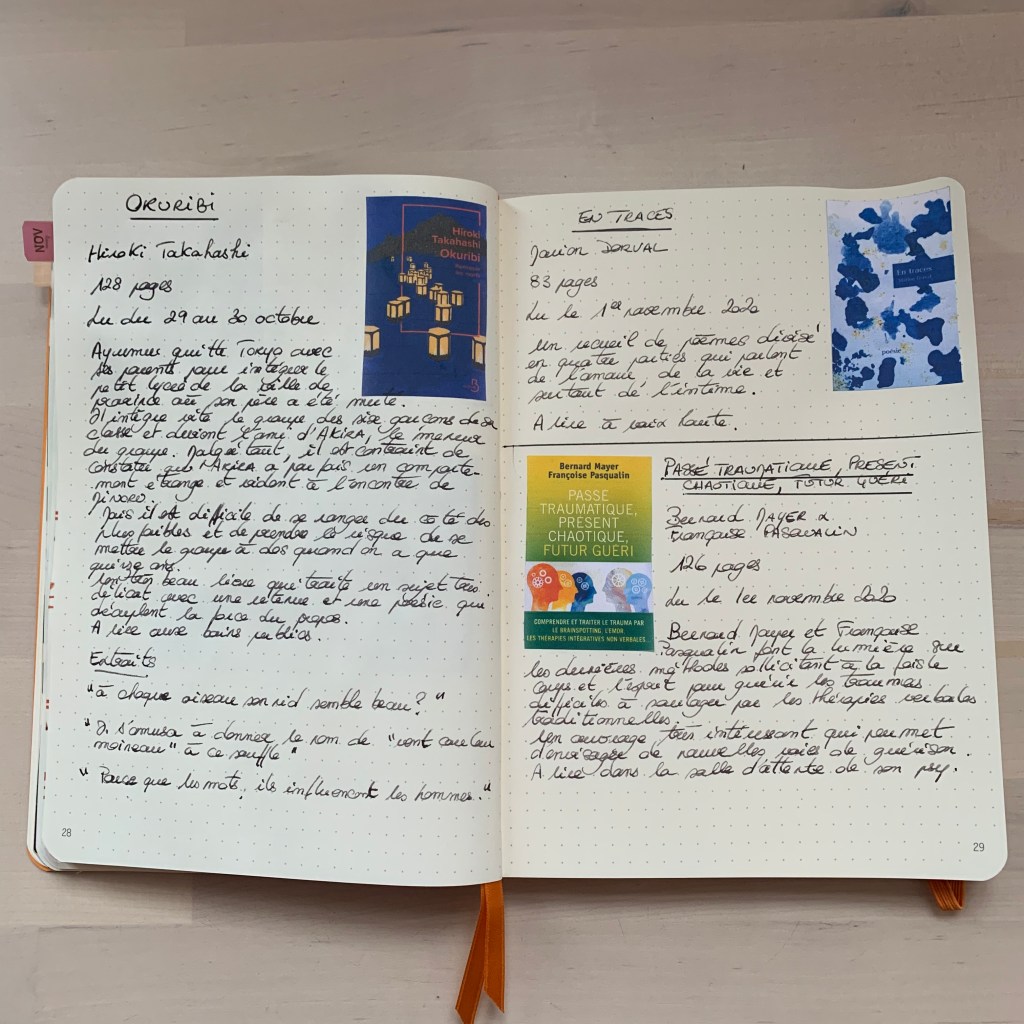 NOV
OKURIBI
Hiroki Takahashi
128 pages
Lu du 29 au 30 octobre.
Ayumu quitte Tokyo avec
ses parents pour intégrer le
petit lycée de la ville de
province où son père a été muté.
Il intègre vite le groupe des six garçons de sa
classe et devient l'ami d'AKIRA, le meneur
du groupe. Malgré tout, il est contraint de
constater que AKIRA a parfois un comporte-
ment étrange et violent à l'encontre de
Minoru.
Mais il est difficile de se ranger du côté des
plus faibles et de prendre le risque de se
mettre le groupe à dos quand on a que
quinze ans.
Un très beau livre qui traite un sujet très
délicat avec une retenue et une poésie qui
décuplent la force du propos.
A lire aux bains publics.
Extraits
"à chaque oiseau son nid semble beau?"
"Il s'amusa à donner le nom de "vent couleur
moineau" à ce souffle"
"Parce que les mots, ils influencent les hommes."
28
Hiroki
Takahashi
Okuribi
EN TRACES
Marion DORVAL
83 pages
Lu le 1er novembre 2020
Un recueil de poèmes divisé
en quatre parties qui parlent
de l'amour, de la vie et
surtout de l'intime.
A lire à voix haute.
En traces
poésie
Bernard Mayer
Françoise Pasqualin
PASSÉ
TRAUMATIQUE,
PRÉSENT
CHAOTIQUE,
FUTUR GUÉRI
COMPRENDRE ET TRAITER LE TRAUMA PAR
LE BRAINSPOTTING, L'EMDR,
LES THÉRAPIES INTÉGRATIVES NON VERBALES...
PASSÉ TRAUMATIQUE, PRESENT
CHAOTIQUE, FUTUR GUÉRI
Bernard MAYER &
Françoise PASQUALIN
126 pages
Lu le 1er novembre 2020
Bernard Mayer et Françoise
Pasqualin font la lumière sur
les dernières méthodes sollicitant à la fois le
corps et l'esprit pour guérir les traumas
difficiles à soulager par les thérapies verbales
traditionnelles.
Un ouvrage très intéressant qui permet
d'envisager de nouvelles voies de guérison.
A lire dans la salle d'attente de son psy.
29